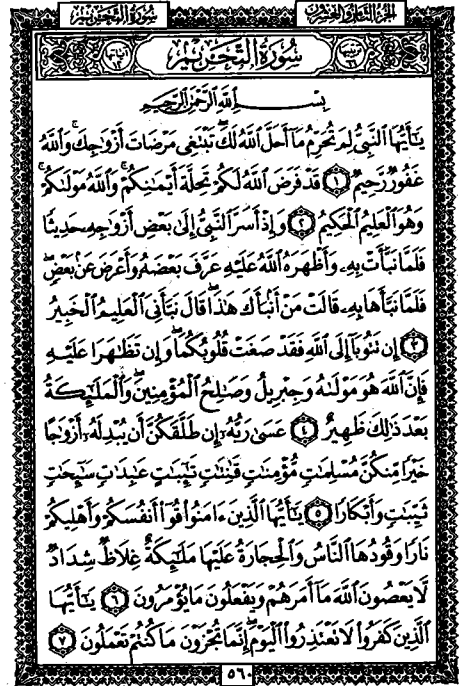 سُورَةُ التَّحْرِيمِ
الجُزْءُ الثَّامِنُ وَالعِشْرُونَ
سُورَةُ التَّحْرِيمِ
بِسْمِ اللَّهِ الرَّحْمَٰنِ الرَّحِيمِ
يَٰٓأَيُّهَا ٱلنَّبِيُّ لِمَ تُحَرِّمُ مَآ أَحَلَّ ٱللَّهُ لَكَۖ تَبْتَغِي مَرْضَاتَ أَزْوَٰجِكَۚ وَٱللَّهُ
غَفُورٞ رَّحِيمٞ ١ قَدْ فَرَضَ ٱللَّهُ لَكُمْ تَحِلَّةَ أَيْمَٰنِكُمْۚ وَٱللَّهُ مَوْلَىٰكُمْۖ
وَهُوَ ٱلْعَلِيمُ ٱلْحَكِيمُ ٢ وَإِذْ أَسَرَّ ٱلنَّبِيُّ إِلَىٰ بَعْضِ أَزْوَٰجِهِۦ حَدِيثٗا
فَلَمَّا نَبَّأَتْ بِهِۦ وَأَظْهَرَهُ ٱللَّهُ عَلَيْهِ عَرَّفَ بَعْضَهُۥ وَأَعْرَضَ عَنۢ بَعْضٖۖ
فَلَمَّا نَبَّأَهَا بِهِۦ قَالَتْ مَنْ أَنۢبَأَكَ هَٰذَاۖ قَالَ نَبَّأَنِيَ ٱلْعَلِيمُ ٱلْخَبِيرُ
٣ إِن تَتُوبَآ إِلَى ٱللَّهِ فَقَدْ صَغَتْ قُلُوبُكُمَاۖ وَإِن تَظَٰهَرَا عَلَيْهِ
فَإِنَّ ٱللَّهَ هُوَ مَوْلَىٰهُ وَجِبْرِيلُ وَصَٰلِحُ ٱلْمُؤْمِنِينَۖ وَٱلْمَلَٰٓئِكَةُ
بَعْدَ ذَٰلِكَ ظَهِيرٌ ٤ عَسَىٰ رَبُّهُۥٓ إِن طَلَّقَكُنَّ أَن يُبْدِلَهُۥٓ أَزْوَٰجًا
خَيْرٗا مِّنكُنَّ مُسْلِمَٰتٖ مُّؤْمِنَٰتٖ قَٰنِتَٰتٖ تَٰٓئِبَٰتٍ عَٰبِدَٰتٖ سَٰٓئِحَٰتٖ
ثَيِّبَٰتٖ وَأَبْكَارٗا ٥ يَٰٓأَيُّهَا ٱلَّذِينَ ءَامَنُوا۟ قُوٓا۟ أَنفُسَكُمْ وَأَهْلِيكُمْ
نَارٗا وَقُودُهَا ٱلنَّاسُ وَٱلْحِجَارَةُ عَلَيْهَا مَلَٰٓئِكَةٌ غِلَاظٞ شِدَادٞ
لَّا يَعْصُونَ ٱللَّهَ مَآ أَمَرَهُمْ وَيَفْعَلُونَ مَا يُؤْمَرُونَ ٦ يَٰٓأَيُّهَا
ٱلَّذِينَ كَفَرُوا۟ لَا تَعْتَذِرُوا۟ ٱلْيَوْمَۖ إِنَّمَا تُجْزَوْنَ مَا كُنتُمْ تَعْمَلُونَ ٧
٥٦٠